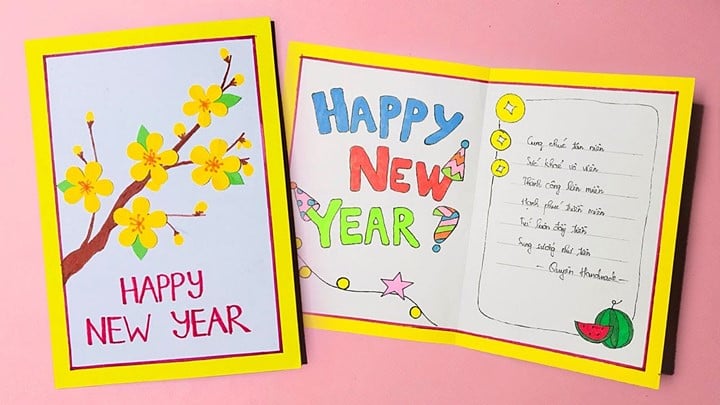 HAPPY
NEW YEAR
HAPPY
NEW
YEAR?
Cung chúc tân niên
Sức khoẻ vô viên
Thành công liên miên
Hạnh phúc triền miên
Túi luôn đầy tiền
Sung sướng như tiên
- Quyên Handmade -